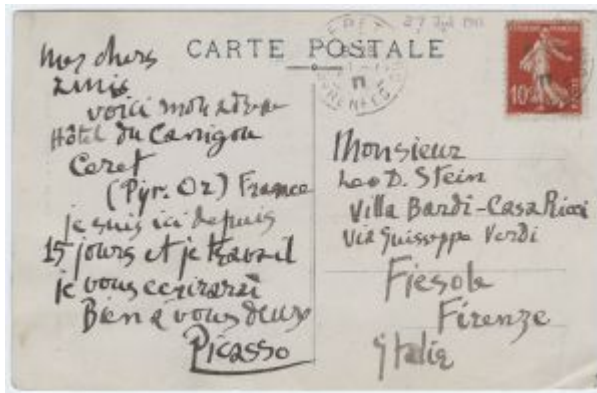 CARTE POSTALE
Mes chers
amis
voici mon adresse
Hôtel du Canigou
Ceret
(Pyr. Or) France
je suis ici depuis
15 jours et je travail
je vous ecrirarai
Bien a vous deux
Picasso
Monsieur
Leo D. Stein
Villa Bardi-Casa Ricci
Via Guiseppe Verdi
Fiesole
Firenze
Italie
10